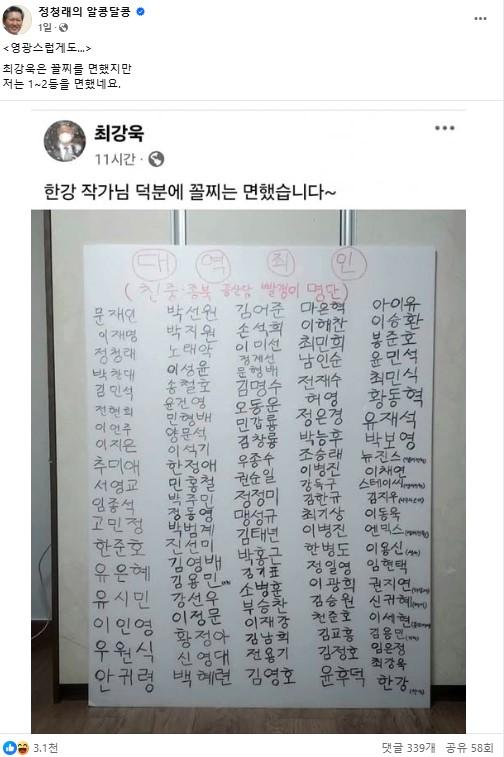 정청래의 알콩달콩
1일
<영광스럽게도...>
최강욱은 꼴찌를 면했지만
저는 1~2등을 면했네요.
최강욱
11시간
한강 작가님 덕분에 꼴찌는 면했습니다~
대 역 죄 인
(친중·종북 공산당 빨갱이 명단)
문재인
이재명
정청래
박찬대
김민석
전현희
이언주
이지은
추미애
서영교
임종석
고민정
한준호
유은혜
유시민
이인영
우원식
안귀령
박선원
박지원
노태악
이성윤
송철호
윤건영
민형배
양문석
이석기
한정애
민홍철
박주민
정동영
박범계
진선미
김영배
김용민
강선우
이정문
황정아
신영대
백혜련
김어준
손석희
이미선
정계선
문형배
김명수
오동운
민갑룡
김창룡
우종수
권순일
정정미
맹성규
김태년
박홍근
소병훈
부승찬
이재강
김남희
전용기
김영호
마은혁
이해찬
최민희
남인순
전재수
허영
정은경
박능후
조승래
이병진
강득구
김한규
최기상
이병진
한병도
정일영
이광희
김승원
천준호
김교흥
김정호
윤후덕
아이유
이승환
봉준호
윤민석
최민식
황동혁
유재석
박보영
뉴진스
이채연
스테이씨
김지우
이동욱
엔믹스
이용신
임현택
권지연
신귀혜
이세현
김용민
임은정
최강욱
한강
3.1천
댓글 339개 공유 58회